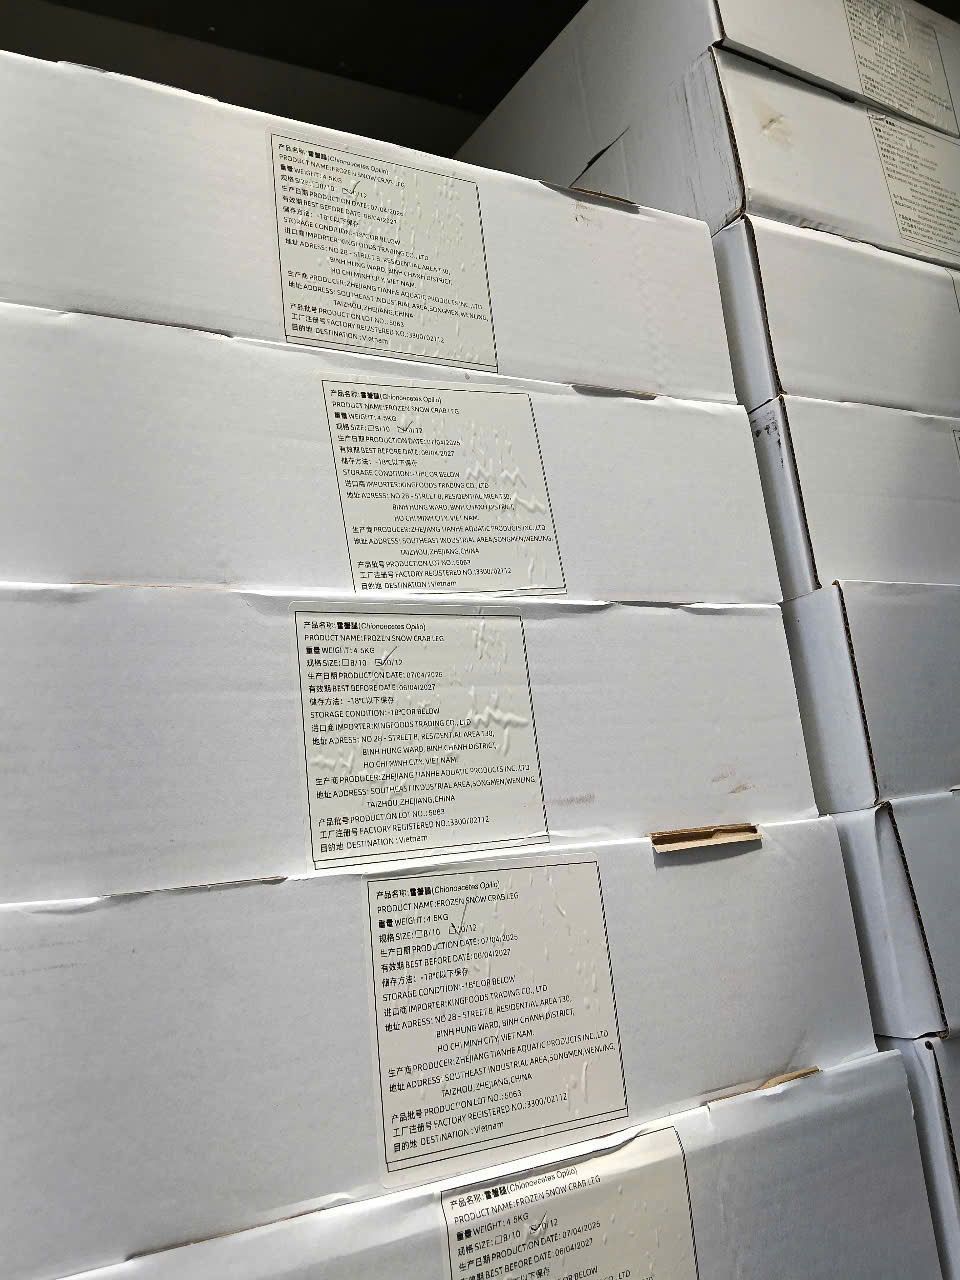 产品名称:雪蟹腿(Chionoacetes Opilio)
PRODUCT NAME:FROZEN SNOW CRAB LEG
重量 WEIGHT: 4.5KG
规格 SIZE: □8/10 ☑10/12
生产日期 PRODUCTION DATE: 07/04/2025
有效期 BEST BEFORE DATE: 06/04/2027
储存方法: -18℃以下保存
STORAGE CONDITION:-18℃OR BELOW
进口商 IMPORTER:KINGFOODS TRADING CO., LTD
地址 ADRESS: NO 28 - STREET 8, RESIDENTIAL AREA 130,
BINH HUNG WARD, BINH CHANH DISTRICT,
HO CHI MINH CITY, VIET NAM.
生产商 PRODUCER: ZHEJIANG TIANHE AQUATIC PRODUCTS INC.,LTD
地址 ADDRESS: SOUTHEAST INDUSTRIAL AREA,SONGMEN,WENLING,
TAIZHOU,ZHEJIANG,CHINA
产品批号 PRODUCTION LOT NO.: 5063
工厂注册号 FACTORY REGISTERED NO.:3300/02112
目的地 DESTINATION :Vietnam
产品名称:雪蟹腿(Chionoacetes Opilio)
PRODUCT NAME:FROZEN SNOW CRAB LEG
重量 WEIGHT: 4.5KG
规格 SIZE: □8/10 ☑10/12
生产日期 PRODUCTION DATE: 07/04/2025
有效期 BEST BEFORE DATE: 06/04/2027
储存方法: -18℃以下保存
STORAGE CONDITION:-18℃OR BELOW
进口商 IMPORTER:KINGFOODS TRADING CO., LTD
地址 ADRESS: NO 28 - STREET 8, RESIDENTIAL AREA 130,
BINH HUNG WARD, BINH CHANH DISTRICT,
HO CHI MINH CITY, VIET NAM.
生产商 PRODUCER: ZHEJIANG TIANHE AQUATIC PRODUCTS INC.,LTD
地址 ADDRESS: SOUTHEAST INDUSTRIAL AREA,SONGMEN,WENLING,
TAIZHOU,ZHEJIANG,CHINA
产品批号 PRODUCTION LOT NO.: 5063
工厂注册号 FACTORY REGISTERED NO.:3300/02112
目的地 DESTINATION :Vietnam
产品名称:雪蟹腿(Chionoacetes Opilio)
PRODUCT NAME:FROZEN SNOW CRAB LEG
重量 WEIGHT: 4.5KG
规格 SIZE: □8/10 ☑10/12
生产日期 PRODUCTION DATE: 07/04/2025
有效期 BEST BEFORE DATE: 06/04/2027
储存方法: -18℃以下保存
STORAGE CONDITION:-18℃OR BELOW
进口商 IMPORTER:KINGFOODS TRADING CO., LTD
地址 ADRESS: NO 28 - STREET 8, RESIDENTIAL AREA 130,
BINH HUNG WARD, BINH CHANH DISTRICT,
HO CHI MINH CITY, VIET NAM.
生产商 PRODUCER: ZHEJIANG TIANHE AQUATIC PRODUCTS INC.,LTD
地址 ADDRESS: SOUTHEAST INDUSTRIAL AREA,SONGMEN,WENLING,
TAIZHOU,ZHEJIANG,CHINA
产品批号 PRODUCTION LOT NO.: 5063
工厂注册号 FACTORY REGISTERED NO.:3300/02112
目的地 DESTINATION :Vietnam
产品名称:雪蟹腿(Chionoacetes Opilio)
PRODUCT NAME:FROZEN SNOW CRAB LEG
重量 WEIGHT: 4.5KG
规格 SIZE: □8/10 ☑10/12
生产日期 PRODUCTION DATE: 07/04/2025
有效期 BEST BEFORE DATE: 06/04/2027
储存方法: -18℃以下保存
STORAGE CONDITION:-18℃OR BELOW
进口商 IMPORTER:KINGFOODS TRADING CO., LTD
地址 ADRESS: NO 28 - STREET 8, RESIDENTIAL AREA 130,
BINH HUNG WARD, BINH CHANH DISTRICT,
HO CHI MINH CITY, VIET NAM.
生产商 PRODUCER: ZHEJIANG TIANHE AQUATIC PRODUCTS INC.,LTD
地址 ADDRESS: SOUTHEAST INDUSTRIAL AREA,SONGMEN,WENLING,
TAIZHOU,ZHEJIANG,CHINA
产品批号 PRODUCTION LOT NO.: 5063
工厂注册号 FACTORY REGISTERED NO.:3300/02112
目的地 DESTINATION :Vietnam
产品名称:雪蟹腿(Chionoacetes Opilio)
PRODUCT NAME:FROZEN SNOW CRAB LEG
重量 WEIGHT: 4.5KG
规格 SIZE: □8/10 ☑10/12
生产日期 PRODUCTION DATE: 07/04/2025
有效期 BEST BEFORE DATE: 06/04/2027
以下保存
OR BELOW
TRADING CO., LTD